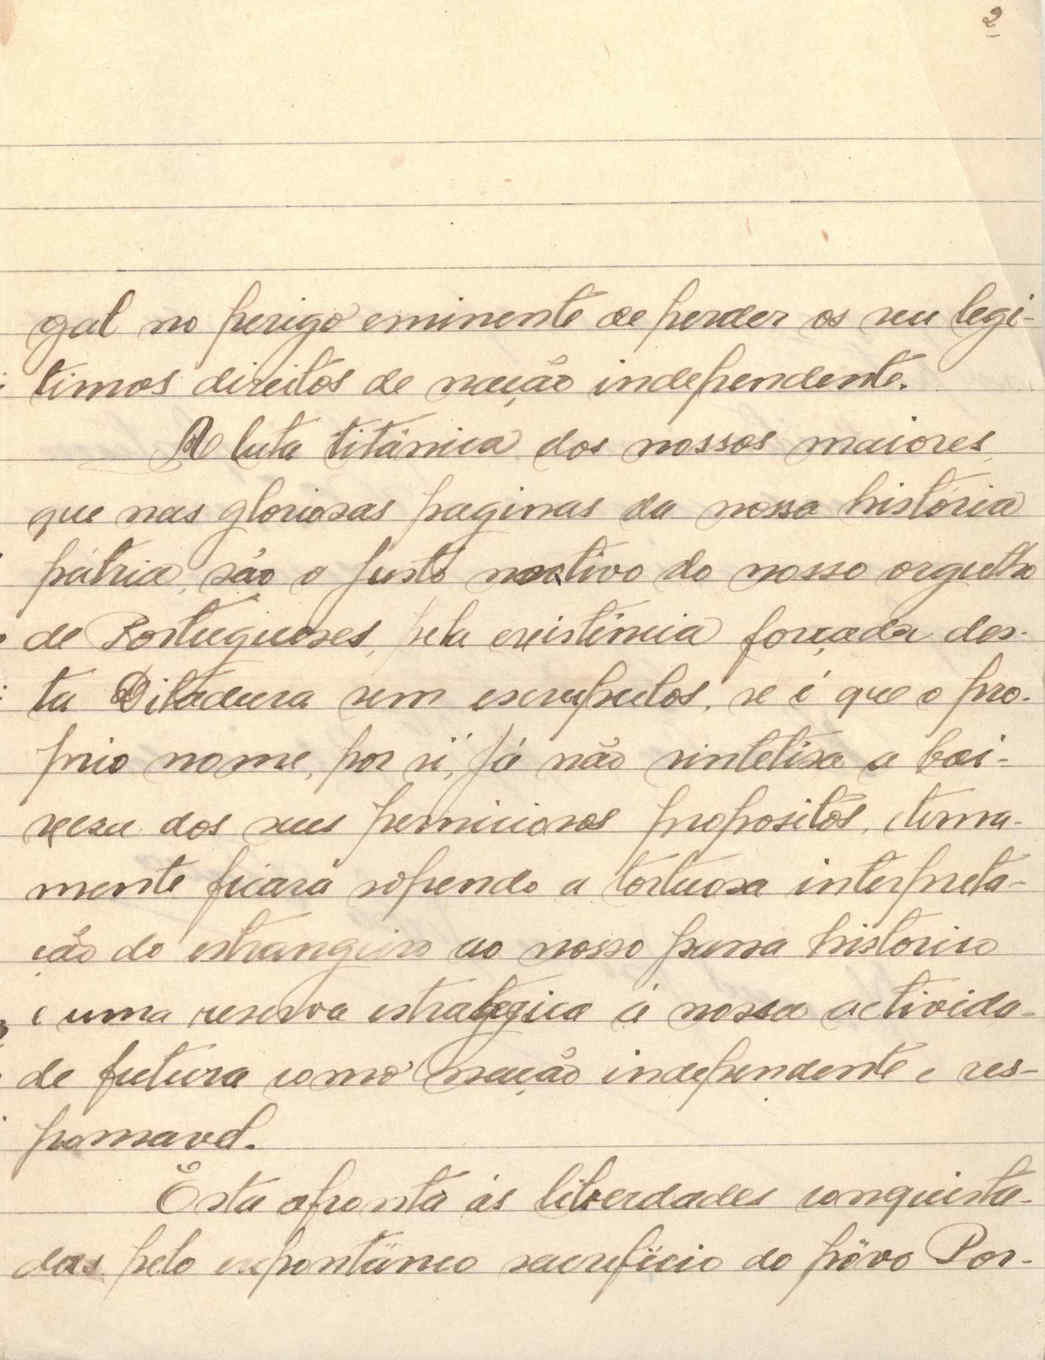 2
gal no perigo eminente de perder os seu legi-
timos direitos de nação independente.
A luta titânica dos nossos maiores
que nas gloriosas paginas da nossa história
pátria, são o justo motivo do nosso orgulho
de Portugueses, pela existência forçada des-
ta Ditadura sem escrupulos, se é que o pro-
prio nome, por si, já não sintetisa a bai-
xesa dos seus perniciosos propositos, eterna-
mente ficará sofrendo a tortuosa interpreta-
ção do estrangeiro ao nosso passa historico
e uma reserva estratégica á nossa activida-
de futura como nação independente e res-
ponsavel.
Ésta afronta ás liberdades conquista-
das pelo expontâneo sacrificio do pôvo Por-